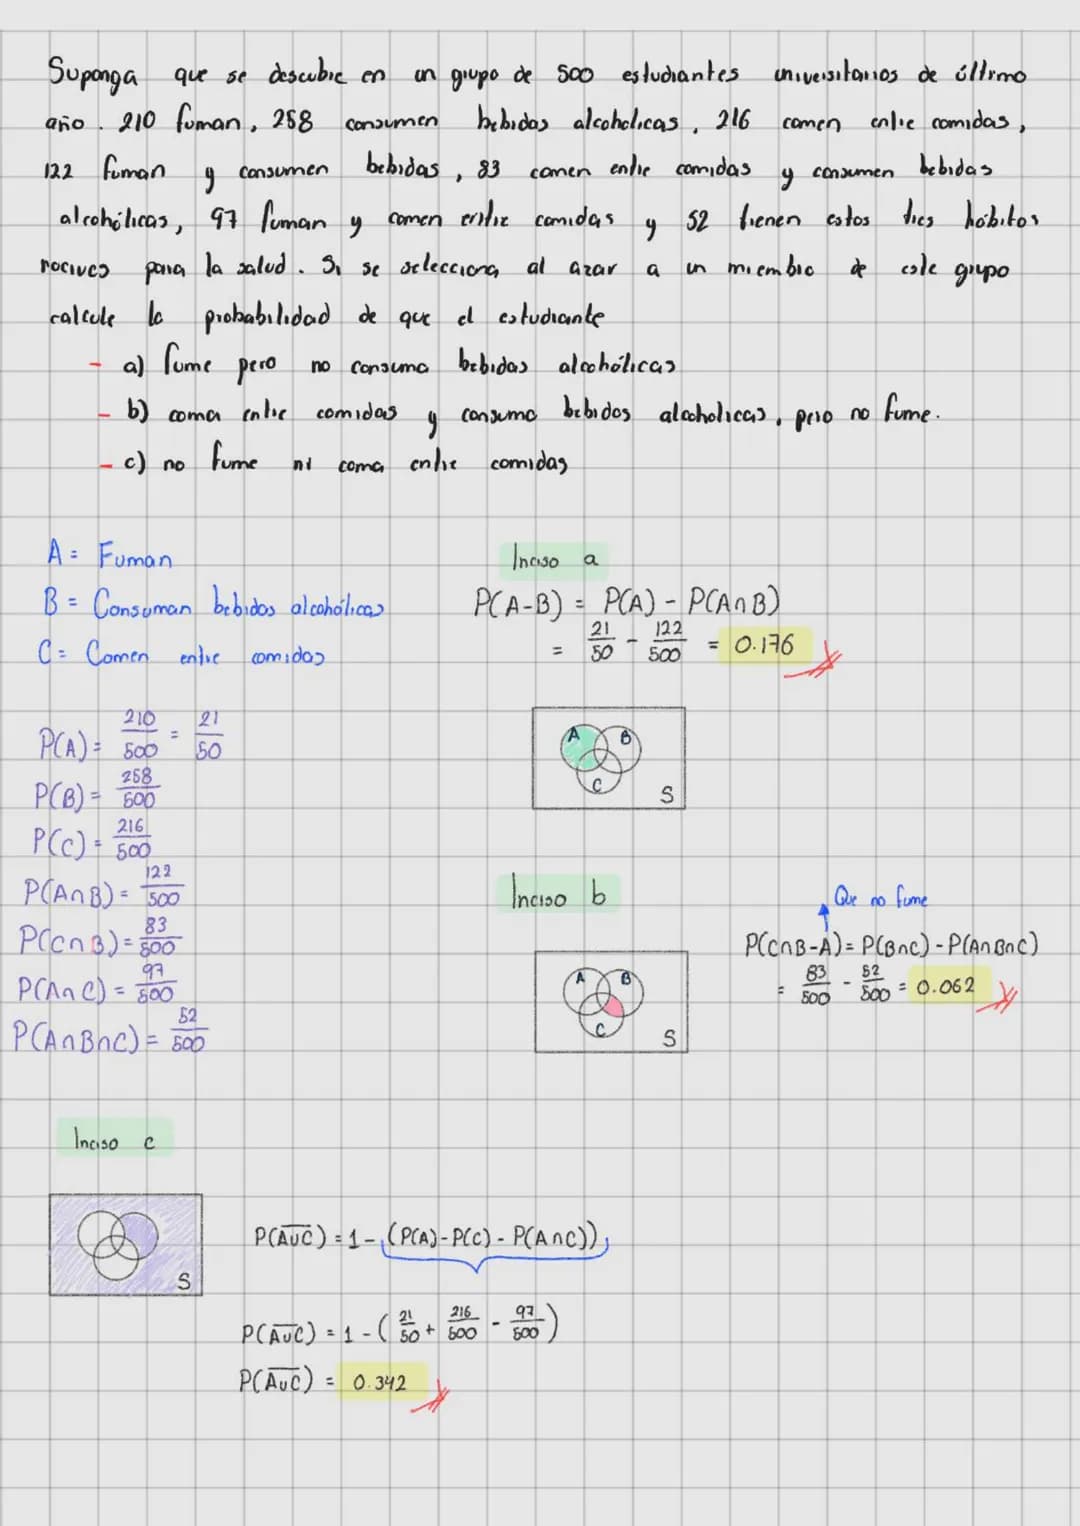 Suponga que se descubre en un grupo de 500 estudiantes universitarios de último
año. 210 fuman, 258 consumen bebidas alcoholicas, 216 comen entre comidas,
122 fuman y consumen bebidas, 83 comen entre comidas y consumen bebidas
alcohólicas, 97 fuman y comen entre comidas y 52 tienen estos tres hábitos
nocivos para la salud. Si se selecciona al azar a un miembro de este grupo
calcule la probabilidad de que el estudiante
- a) fume pero no consuma bebidas alcohólicas
- b) coma entre comidas y consuma bebidas alcoholicas, pero no fume.
- c) no fume ni coma entre comidas
A = Fuman
B = Consuman bebidas alcohólicas
C = Comen entre comidas
P(A) = 210/500 = 21/50
P(B) = 258/500
P(C) = 216/500
P(A∩B) = 122/500
P(C∩B) = 83/500
P(A∩C) = 97/500
P(A∩B∩C) = 52/500
Inciso a
P(A-B) = P(A) - P(A∩B)
= 21/50 - 122/500 = 0.176
A B
C S
Inciso b
Que no fume
P(C∩B-A) = P(B∩C) - P(A∩B∩C)
= 83/500 - 52/500 = 0.062
A B
C S
Inciso c
S
P(A̅U̅C̅) = 1 - (P(A) - P(C) - P(A∩C))
P(A̅U̅C̅) = 1 - (21/50 + 216/500 - 97/500)
P(A̅U̅C̅) = 0.342